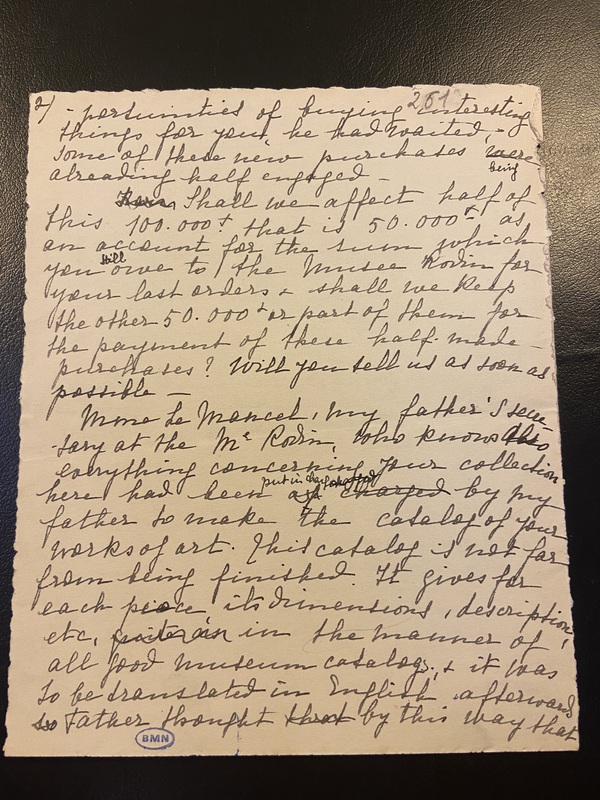 2/ 261
- portunities of buying interesting
things for you, he had waited, -
some of these new purchases were
being
alreading half engaged -
Shall we affect half of
this 100.000f that is 50.000f as
an account for the sum which
still
you owe to the Musee Rodin for
your last orders & shall we keep
the other 50.000f or part of them for
the payment of these half-made
purchases? Will you tell us as soon as
possible -
Mme Le Mancel, my father's secre
-tary at the Me Rodin, who knows also
everything concerning your collection
put in charge
here had been charged by my
father to make the catalog of your
works of art. This catalog is not far
from being finished. It gives for
each piece its dimensions, description,
etc, in the manner of
all good museum catalogs, & it was
to be translated in English afterwards
so Father thought that by this way that
BMN